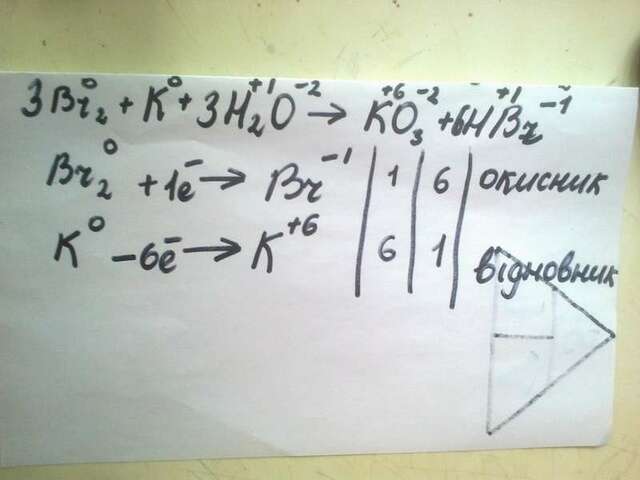 3Br₂⁰ + K⁰ + 3H₂⁺¹O⁻² → K⁺⁶O₃⁻² + 6H⁺¹Br⁻¹
Br₂⁰ + 1e⁻ → Br⁻¹ | 1 | 6 | окисник
K⁰ - 6e⁻ → K⁺⁶ | 6 | 1 | відновник